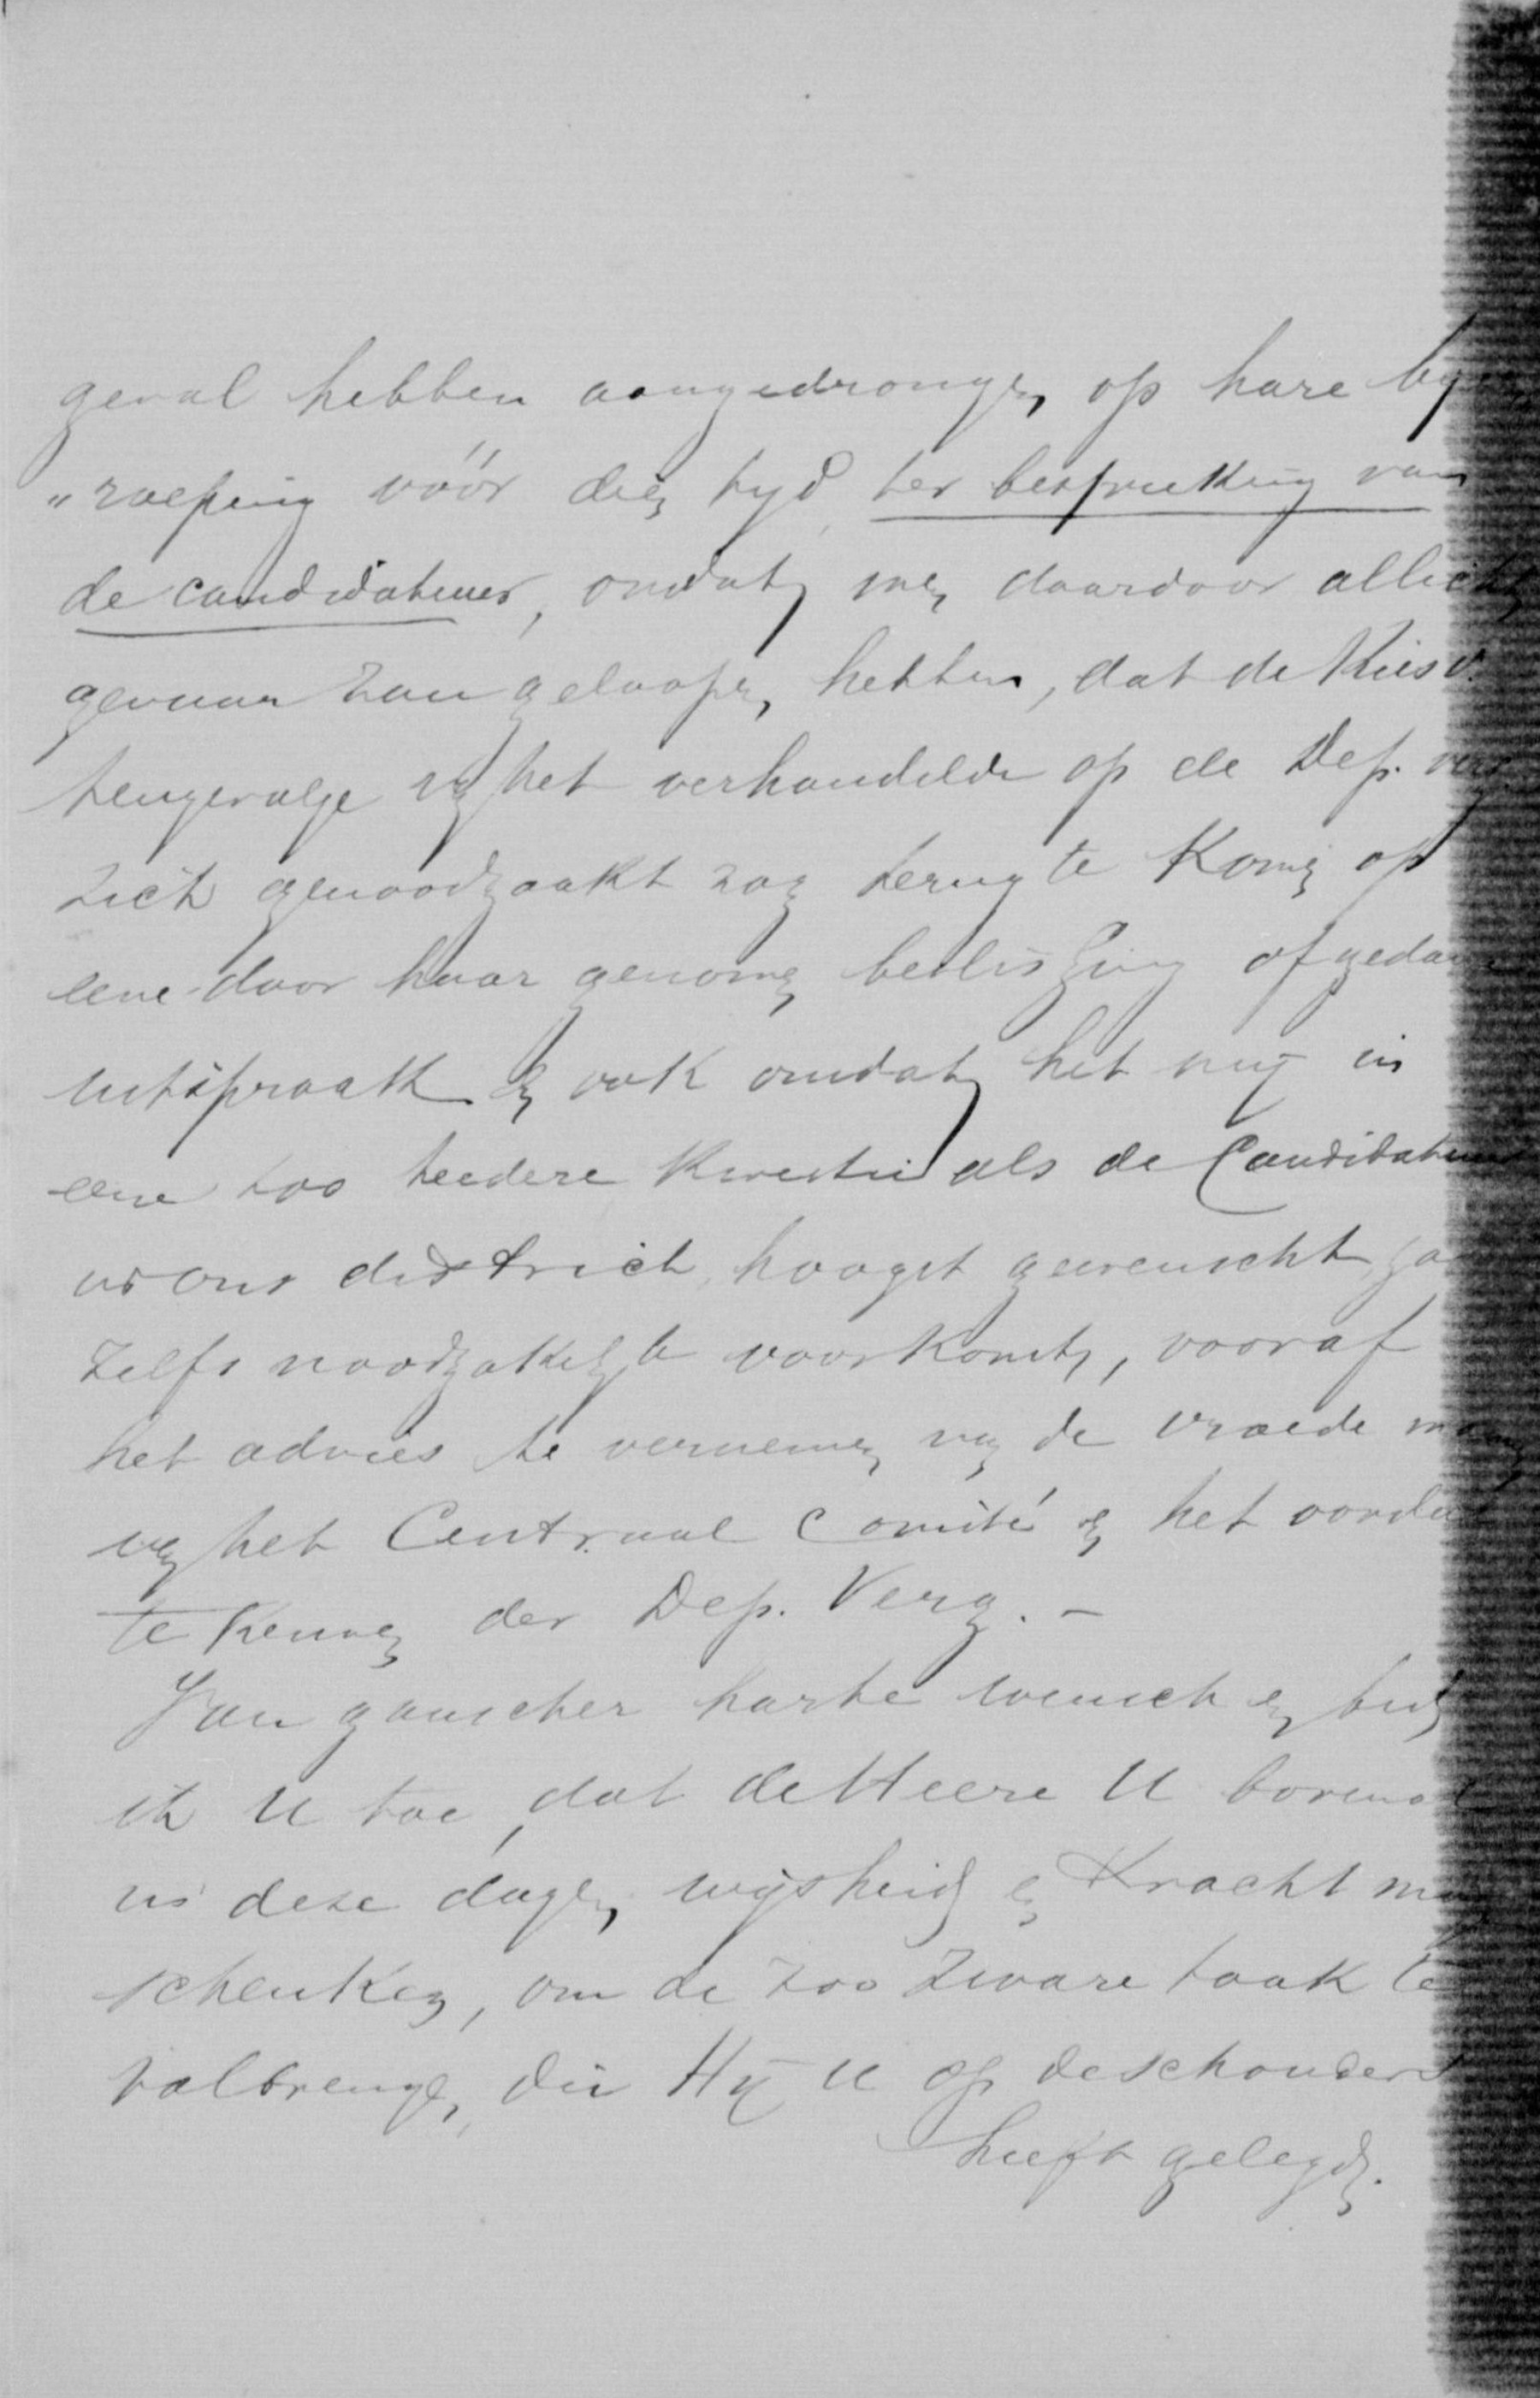 geval hebben aangedrongen op hare by
„roeping vóór dien tyd, ter bespreking van
de candidatuur, omdat men daardoor allicht
gevaar zou geloopen hebben, dat de Kiesv.
tengevolge van het verhandelde op de Dep. verg.
zich genoodzaakt zag terug te komen op
eene door haar genomen beslissing of gedane
uitspraak en ook omdat het my in
eene zoo teedere kwestie als de Candidatuur
in ons district, hoogst gewenscht, ja
zelfs noodzakelyk voorkomt, vooraf
het advies te vernemen van de vroede mannen
van het Centraal Comité en het oordeel
te kennen der Dep. Verg. –
Van ganscher harte wensch en bid
ik U toe, dat de Heere U bovenal
in deze dagen wijsheid en Kracht moge
schenken, om de zoo zware taak te
volbrengen, die Hy U op de schouders
heeft gelegd.